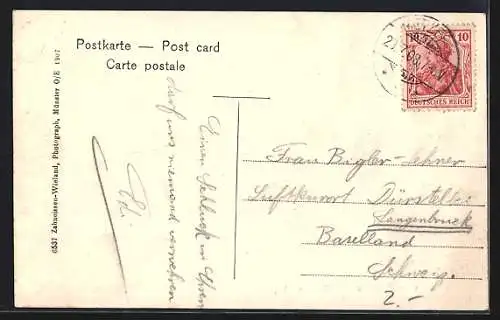 Postkarte — Post card
Carte postale
6537 Zahnoisen-Wieland, Photograph, Münster O/E 1907
Einen Schluck in Ehren
darf uns niemand verwehren
Edi
10
DEUTSCHES REICH
Frau Bigler-
Luftkurort Dürstel b.
Langenbruck
Baselland
Schweiz.
2.-